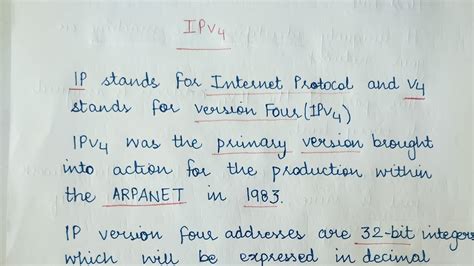 IPv4
IP stands for Internet Protocol and v4
stands for version Four (IPv4)
IPv4 was the primary version brought
into action for the production within
the ARPANET in 1983.
IP version four addresses are 32-bit integers
which will be expressed in decimal